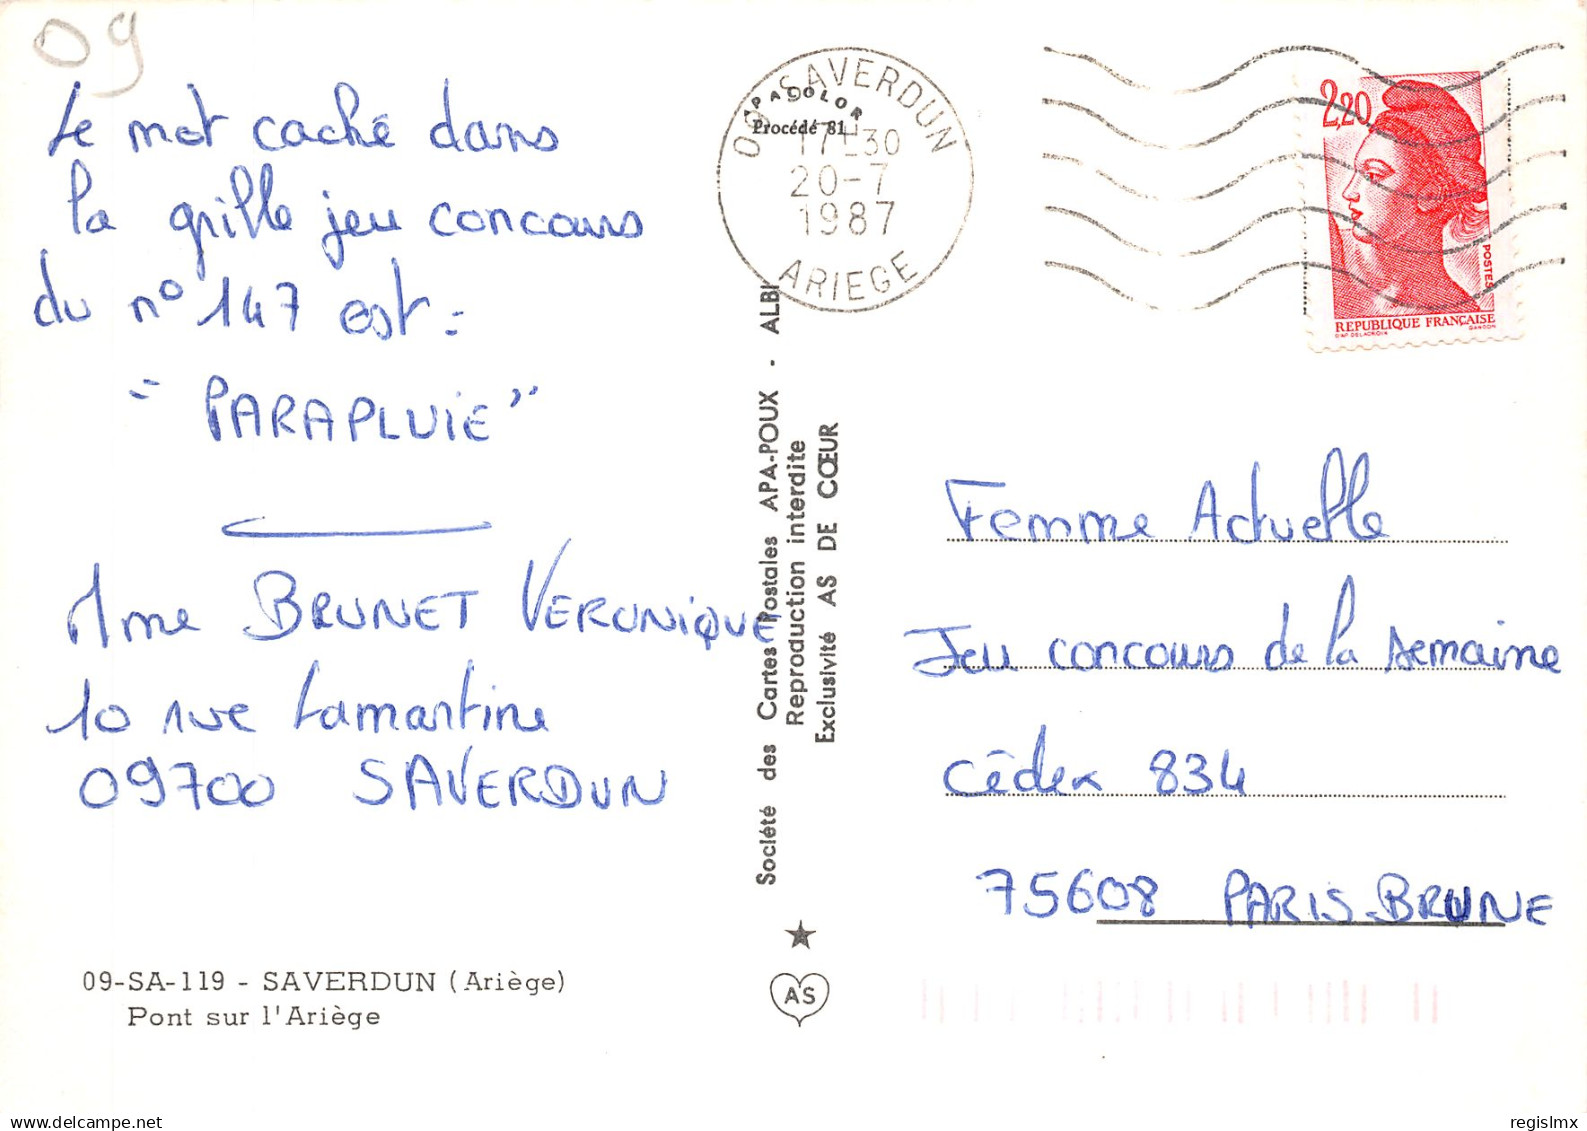 09
Le mot caché dans
la grille jeu concours
du n° 147 est :
- "PARAPLUIE"
Mme BRUNET VERONIQUE
10 rue Lamartine
09700 SAVERDUN
09-SA-119 - SAVERDUN (Ariège)
Pont sur l'Ariège
Société des Cartes Postales APA-POUX - ALBI
Reproduction interdite
Exclusivité AS DE CŒUR
AS
APACOLOR
Procédé 81
09 SAVERDUN
17H30
20-7
1987
ARIEGE
2,20
POSTES
REPUBLIQUE FRANÇAISE
D'AP. DELACROIX GANDON
Femme Actuelle
Jeu concours de la semaine
Cédex 834
75608 PARIS-BRUNE
regislmx